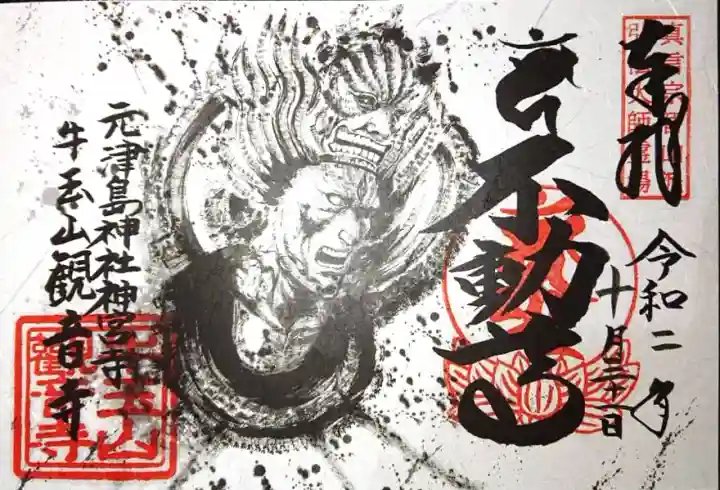 奉拝
弘法大師霊場
令和二年
十月三十一日
不動尊
元津島神社神宮寺
牛玉山観音寺
牛玉山
観音寺